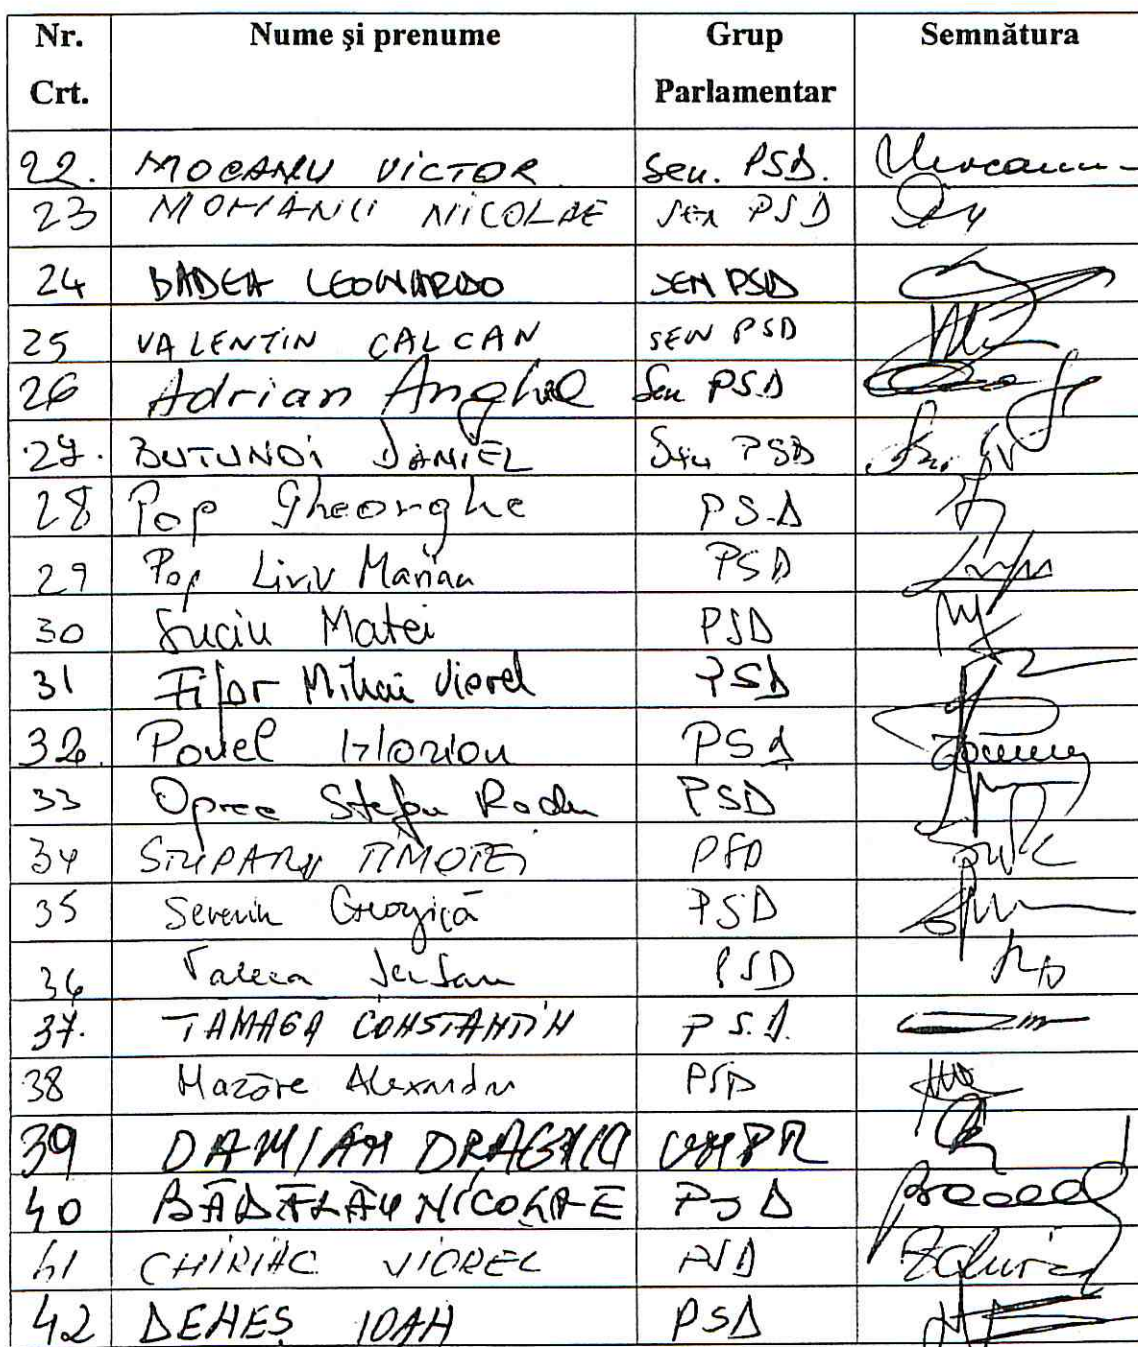 Nr. Crt. Nume şi prenume Grup Parlamentar Semnătura
22. MOCANU VICTOR Sen. PSD. Mocanu
23 MOHÂNU NICOLAE Sen PSD
24 BADEA LEONARDO SEN PSD
25 VALENTIN CALCAN SEN PSD
26 Adrian Anghel Sen PSD
27. BUTUNOI DANIEL Sen PSD
28 Pop Gheorghe PSD
29 Pop Liviu Marian PSD
30 Suciu Matei PSD
31 Fifor Mihai Viorel PSD
32. Pavel Marian PSD
33 Oprea Stefan Radu PSD
34 STUPARU TIMOTEI PSD
35 Severin Georgică PSD
36 Valeca Serban PSD
37. TAMAGA CONSTANTIN P S.D.
38 Mazăre Alexandru PSD
39 DAMIAN DRAGHICI UNPR
40 BĂDĂLĂU NICOLAE PSD
41 CHIRIAC VIOREL PSD
42 DENEŞ IOAN PSD